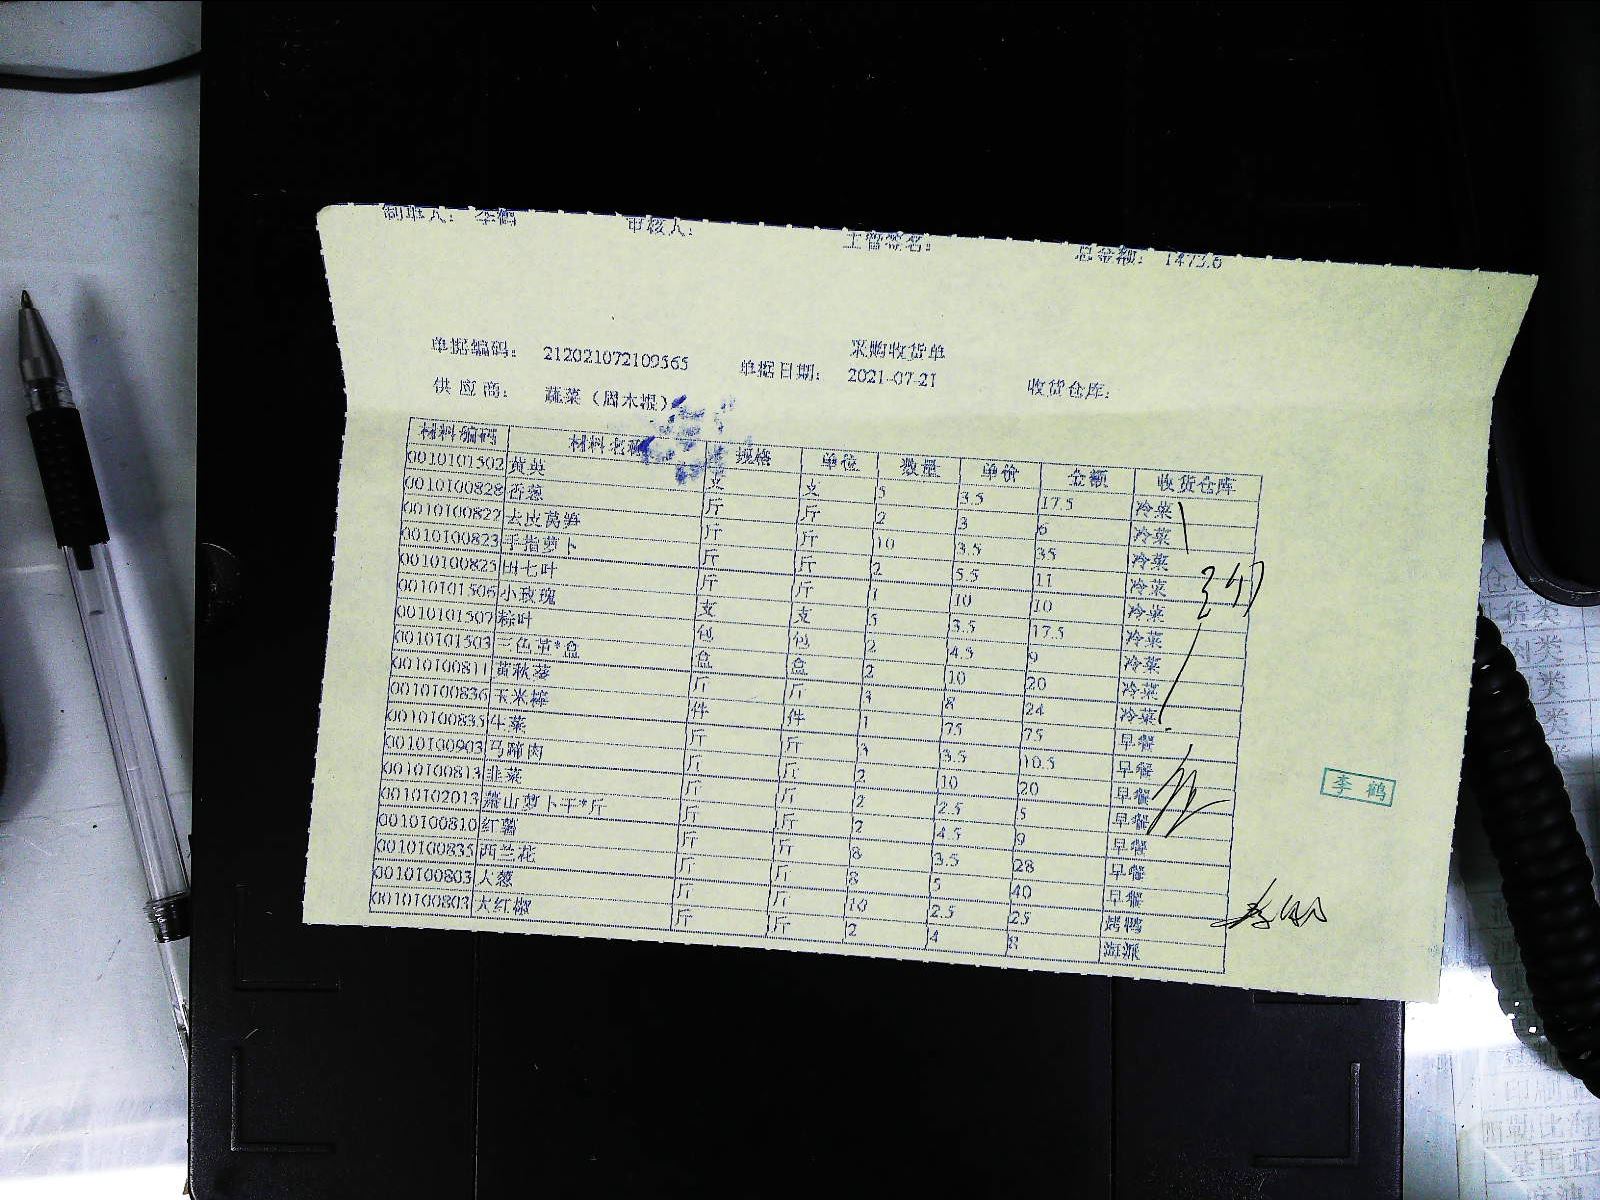 制单人： 李鹤 审核人： 主管签名： 总金额： 1473.6
采购收货单
单据编码： 212021072109565 单据日期： 2021-07-21 收货仓库：
供应商： 蔬菜（周木根）
材料编码 材料名称 规格 单位 数量 单价 金额 收货仓库
0010101502 支 支 5 3.5 17.5 冷菜
0010100828 香葱 斤 斤 2 3 6 冷菜
0010100822 去皮莴笋 斤 斤 10 3.5 35 冷菜
0010100823 手指萝卜 斤 斤 2 5.5 11 冷菜
0010100825 田七叶 斤 斤 1 10 10 冷菜
0010101506 小玫瑰 支 支 5 3.5 17.5 冷菜
0010101507 粽叶 包 包 2 4.5 9 冷菜
0010101503 三色堇*盒 盒 盒 2 10 20 冷菜
0010100811 黄秋葵 斤 斤 3 8 24 冷菜
0010100836 玉米棒 件 件 1 75 75 早餐
0010100835 生菜 斤 斤 3 3.5 10.5 早餐
0010100903 马蹄肉 斤 斤 2 10 20 早餐
0010100813 韭菜 斤 斤 2 2.5 5 早餐
0010102013 萧山萝卜干*斤 斤 斤 2 4.5 9 早餐
0010100810 红薯 斤 斤 8 3.5 28 早餐
0010100835 西兰花 斤 斤 8 5 40 早餐
0010100803 大葱 斤 斤 10 2.5 25 烤鸭
0010100803 大红椒 斤 斤 2 4 8 海派
李鹤